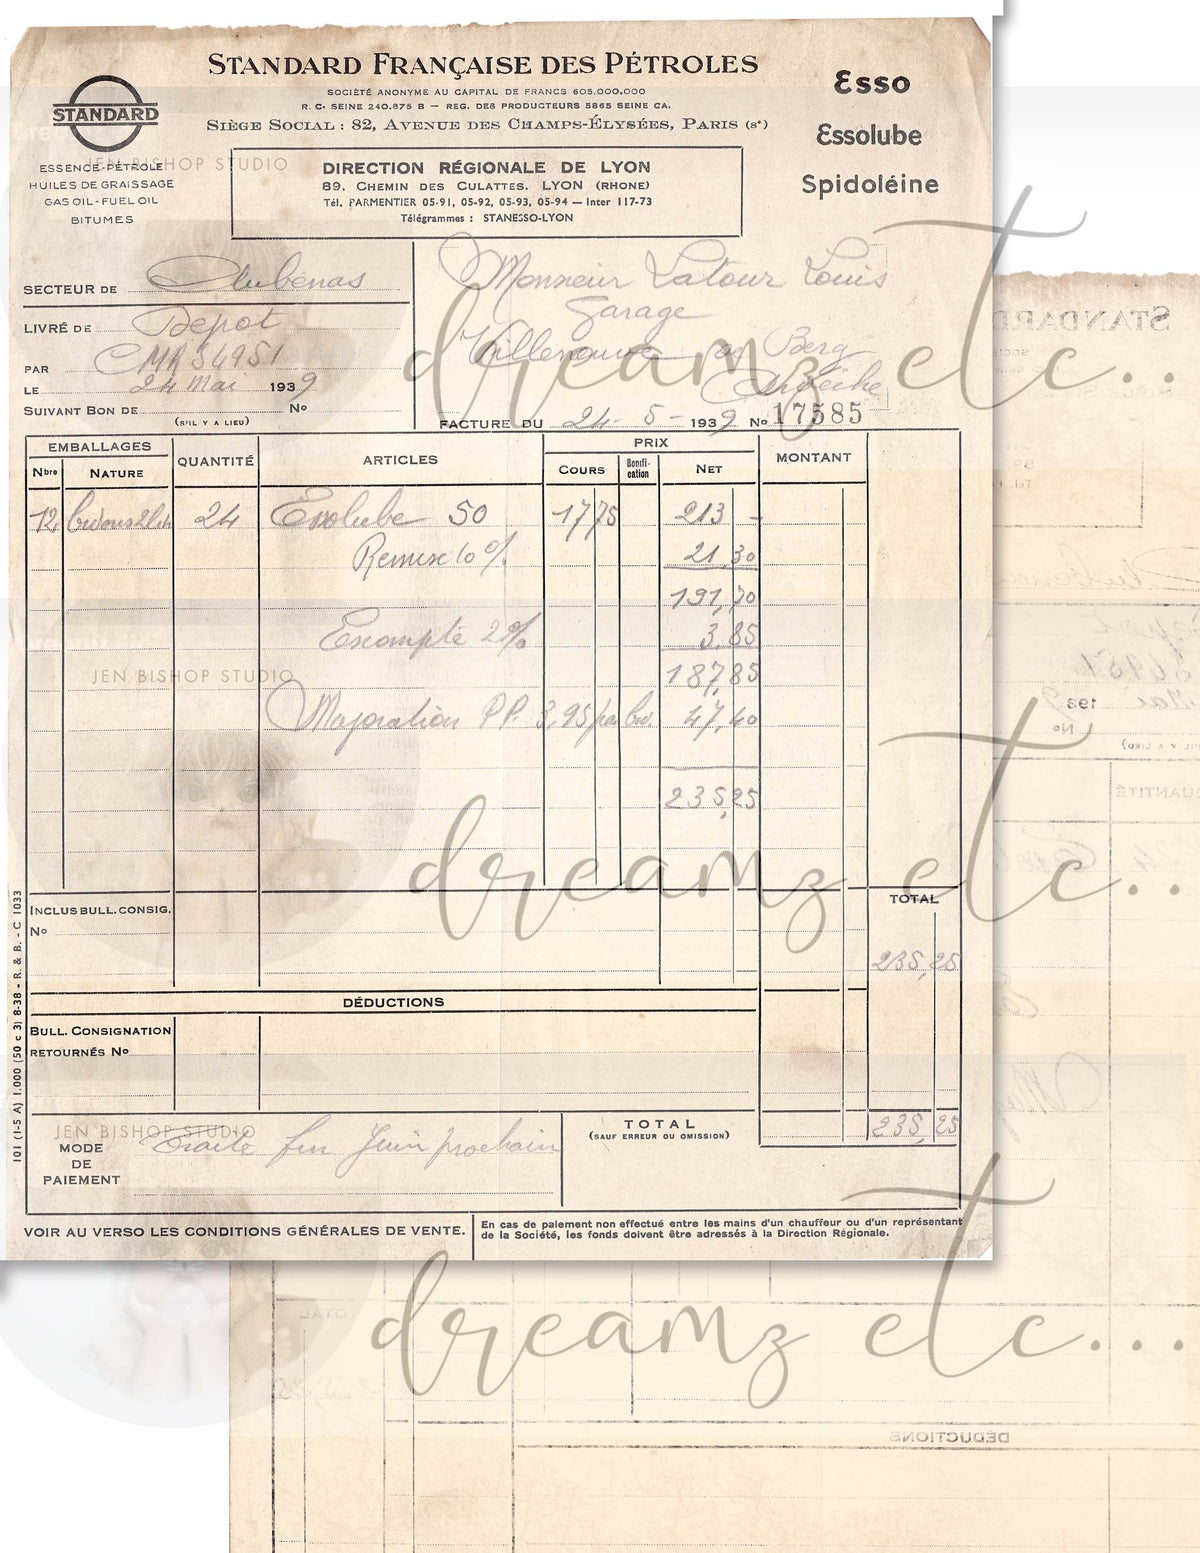 STANDARD FRANÇAISE DES PÉTROLES
SOCIÉTÉ ANONYME AU CAPITAL DE FRANCS 605.000.000
R. C. SEINE 240.875 B — REG. DES PRODUCTEURS 5865 SEINE CA.
SIÈGE SOCIAL : 82, AVENUE DES CHAMPS-ÉLYSÉES, PARIS (8e)
STANDARD
ESSENCE-PÉTROLE
HUILES DE GRAISSAGE
GAS OIL - FUEL OIL
BITUMES
JEN BISHOP STUDIO
DIRECTION RÉGIONALE DE LYON
89, CHEMIN DES CULATTES, LYON (RHONE)
Tél. PARMENTIER 05-91, 05-92, 05-93, 05-94 — Inter 117-73
Télégrammes : STANESSO-LYON
Esso
Essolube
Spidoléine
SECTEUR DE Aubenas
LIVRÉ DE Depot
PAR CMR 54951
LE 24 Mai 1939
SUIVANT BON DE No
(S'IL Y A LIEU)
Monsieur Latour Louis
Garage
Villeneuve de Berg
Ardèche
FACTURE DU 24-5-1939 No 17585
dreamz etc...
EMBALLAGES QUANTITÉ ARTICLES PRIX MONTANT
Nbre NATURE COURS Bonifi-cation NET
12 bidons 2 lit 24 Essolube 50 17 75 213 -
Remise 10 % 21,30
191,70
Escompte 2% 3,85
187,85
JEN BISHOP STUDIO
Majoration PP. 3,95 par bid. 47,40
235,25
dreamz etc...
INCLUS BULL. CONSIG.
No
TOTAL
235,25
DÉDUCTIONS
BULL. CONSIGNATION
RETOURNÉS No
JEN BISHOP STUDIO
MODE DE PAIEMENT Traite fin Juin prochain
TOTAL 235,25
(SAUF ERREUR OU OMISSION)
VOIR AU VERSO LES CONDITIONS GÉNÉRALES DE VENTE.
En cas de paiement non effectué entre les mains d'un chauffeur ou d'un représentant
de la Société, les fonds doivent être adressés à la Direction Régionale.
101 (I-5 A) 1.000 (50 c 3) 8-38 - R. & B. - C 1033
dreamz etc...
DÉDUCTIONS